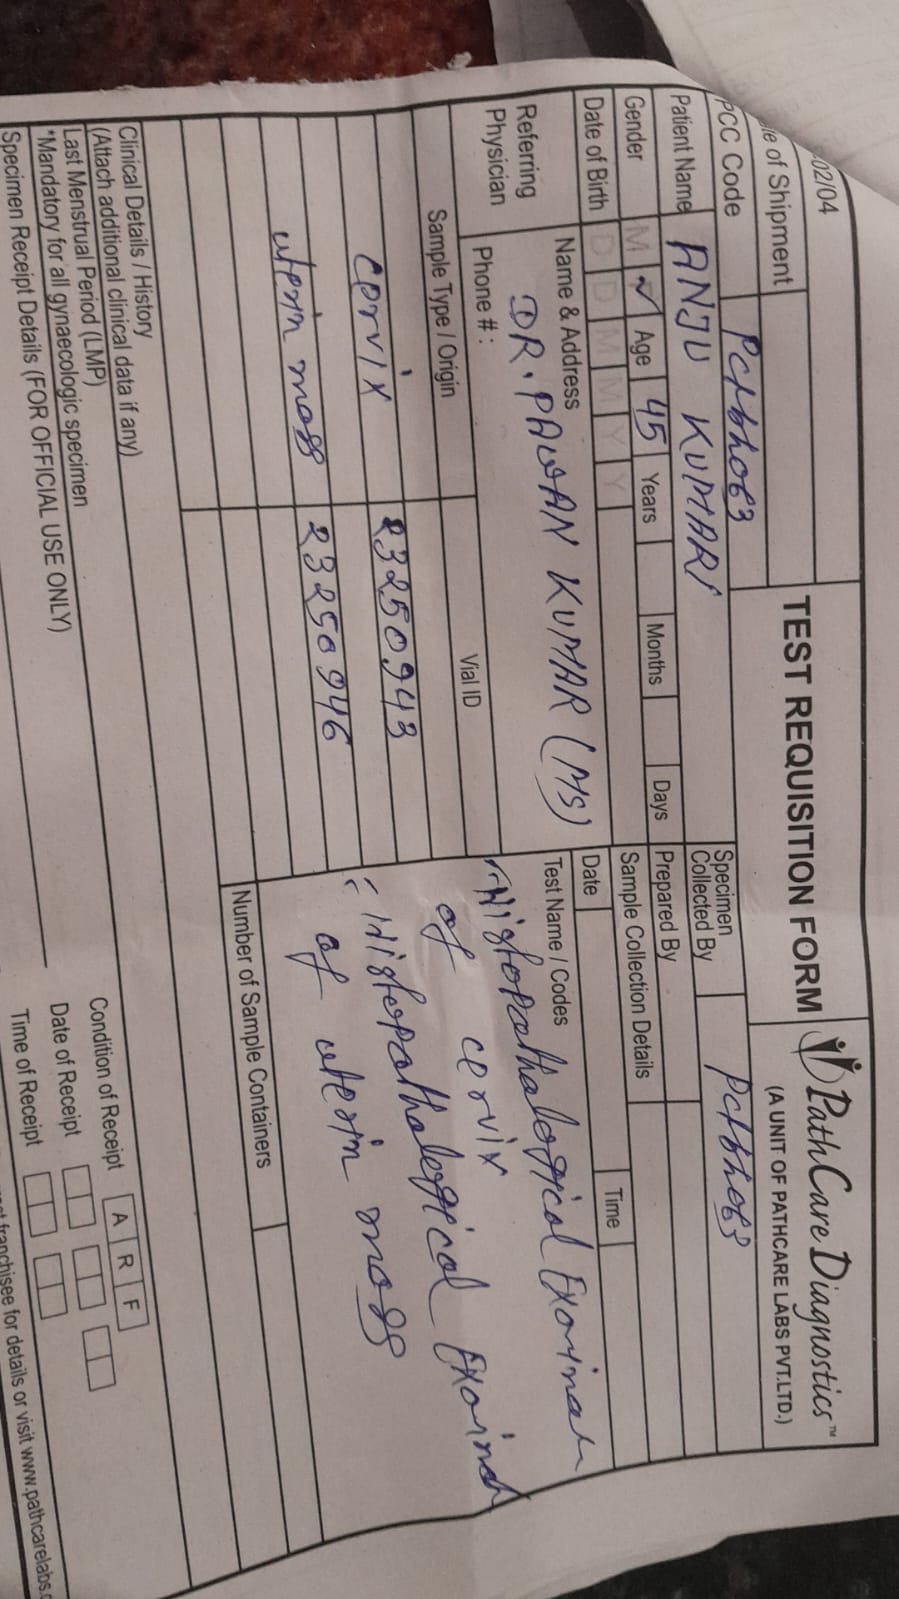 -02/04
TEST REQUISITION FORM
PathCare Diagnostics™
(A UNIT OF PATHCARE LABS PVT.LTD.)
of Shipment
PCC Code Pctbh063
Specimen Collected By Pctbh063
Patient Name ANJU KUMARI
Prepared By
Gender M ✓ Age 45 Years Months Days
Sample Collection Details
Date of Birth D D M M Y Y
Date Time
Referring Physician
Name & Address
DR. PAWAN KUMAR (MS)
Phone #:
Test Name / Codes
Histopathological Examinah
of cervix
Histopathological Examinah
of uterin mass
Sample Type / Origin Vial ID
cervix 23250943
uterin mass 23250946
Number of Sample Containers
Clinical Details / History
(Attach additional clinical data if any)
Last Menstrual Period (LMP)
*Mandatory for all gynaecologic specimen
Specimen Receipt Details (FOR OFFICIAL USE ONLY)
Condition of Receipt A R F
Date of Receipt
Time of Receipt
franchisee for details or visit www.pathcarelabs.